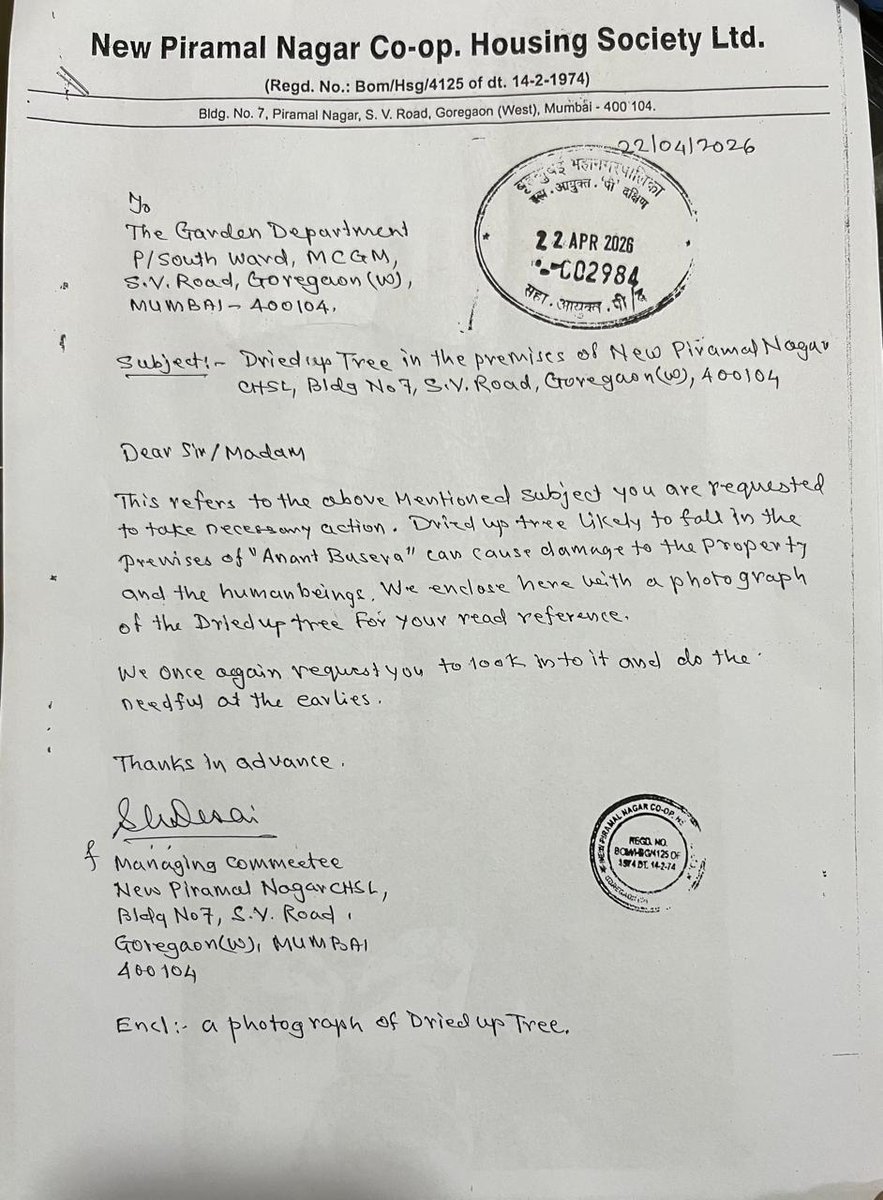 New Piramal Nagar Co-op. Housing Society Ltd.
(Regd. No.: Bom/Hsg/4125 of dt. 14-2-1974)
Bldg. No. 7, Piramal Nagar, S. V. Road, Goregaon (West), Mumbai - 400 104.
22/04/2026
बृहन्मुंबई महानगरपालिका
सहा. आयुक्त. 'पी' दक्षिण
22 APR 2026
C02984
सहा. आयुक्त. पी/द
To
The Garden Department
P/South Ward, MCGM,
S.V. Road, Goregaon (W),
MUMBAI - 400104.
Subject:- Dried up Tree in the premises of New Piramal Nagar
CHSL, Bldg No 7, S.V. Road, Goregaon (W), 400104
Dear Sir/Madam
This refers to the above mentioned subject you are requested
to take necessary action. Dried up tree likely to fall in the
premises of "Anant Baseva" can cause damage to the property
and the human beings. We enclose here with a photograph
of the Dried up tree For your read reference.
We once again request you to look into it and do the
needful at the earlies.
Thanks in advance.
Desai
Managing Commeetee
New Piramal Nagar CHSL,
Bldg No 7, S.V. Road,
Goregaon (W), MUMBAI
400104
NEW PIRAMAL NAGAR CO-OP.
REGD. NO.
14-2-74
Encl:- a photograph of Dried up Tree.